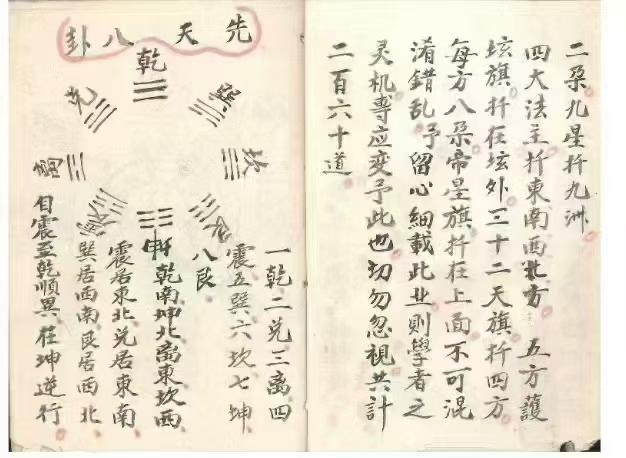 二朶九星扦九洲
四大法主扦東南西北方 五方護
垓旗扦在垓外三十二天旗扦四方
每方八朶帝星旗扦在上面不可混
淆錯乱予留心細載此业則學者之
灵机專应变予此也切勿忽視共計
二百六十道
先天八卦
乾
巽
兌
坎
离
艮
震
坤
一乾二兑三离四
震五巽六坎七坤
八艮
乾南坤北离東坎西
震居東北兑居東南
巽居西南艮居西北
自震至乾順異茬坤逆行